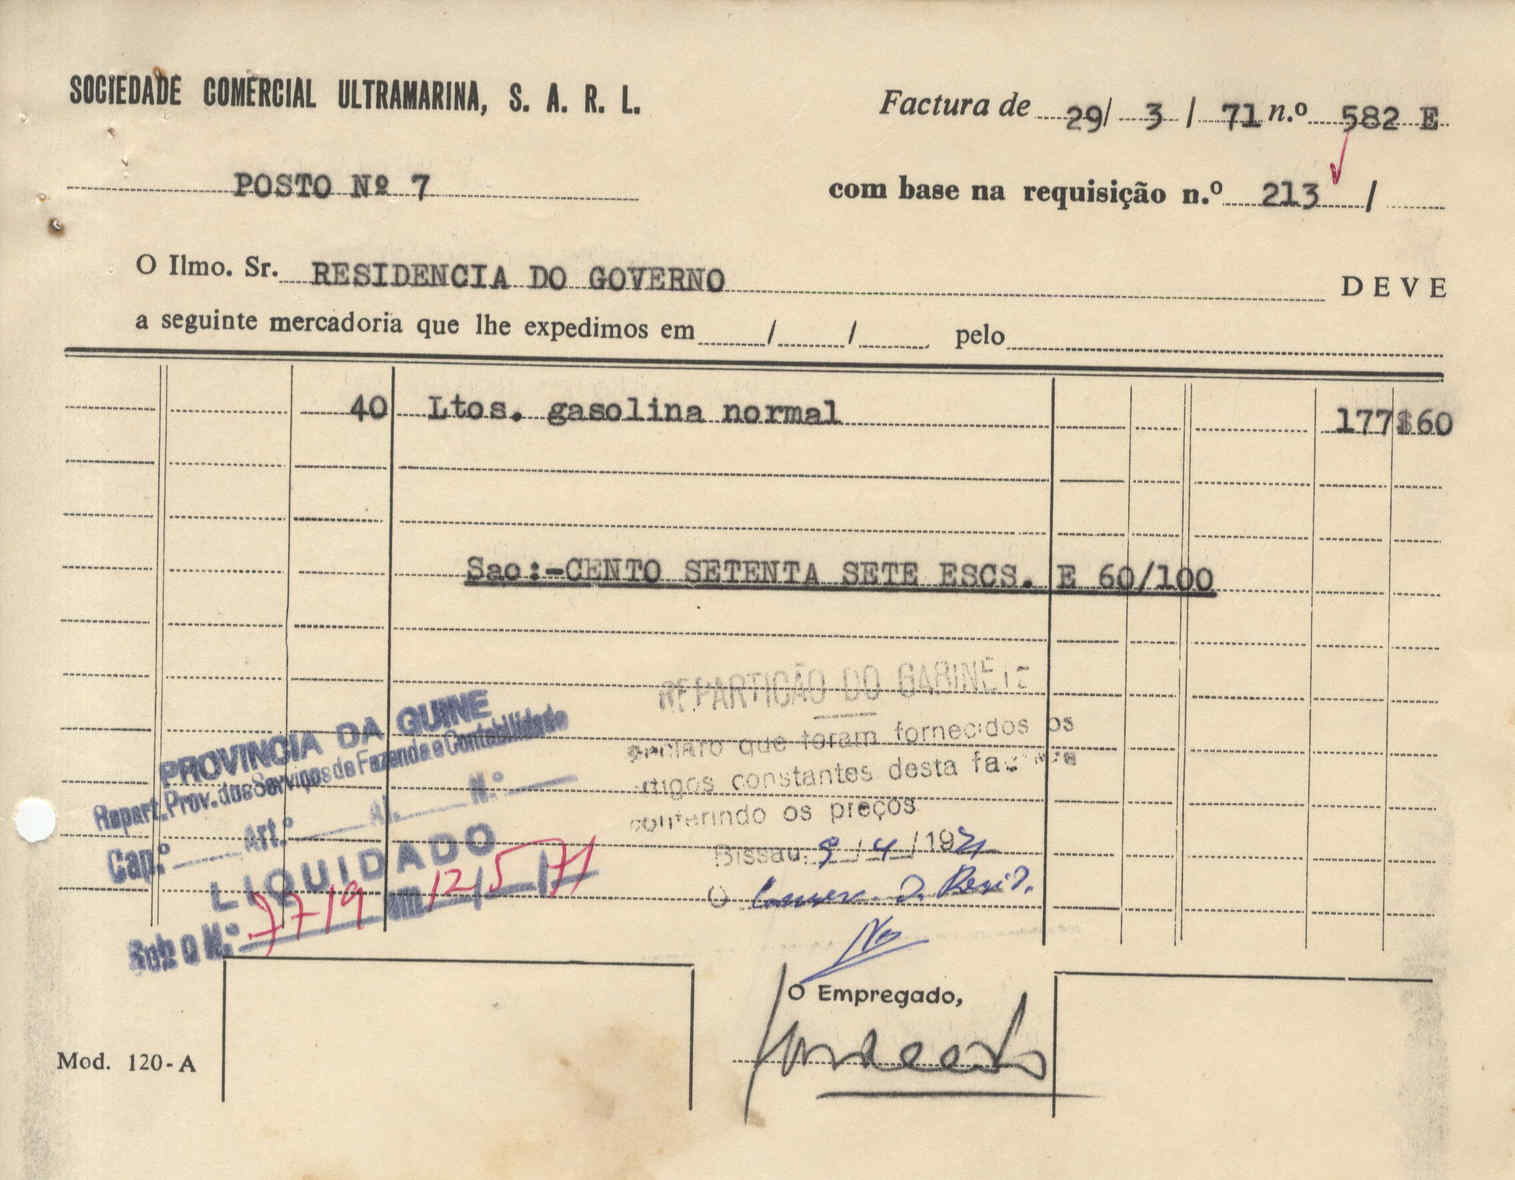 SOCIEDADE COMERCIAL ULTRAMARINA, S. A. R. L.
Factura de 29/ 3 / 71 n.º 582 E
POSTO Nº 7
com base na requisição n.º 213 /
O Ilmo. Sr. RESIDENCIA DO GOVERNO DEVE
a seguinte mercadoria que lhe expedimos em / / pelo
40 Ltos. gasolina normal 177$60
Sao:-CENTO SETENTA SETE ESCS. E 60/100
REPARTIÇÃO DO GABINETE
que foram fornecidos os
constantes desta
conferindo os preços
Bissau, 9 / 4 / 1971
O
PROVINCIA DA GUINE
Repart. Prov. dos Serviços de Fazenda e Contabilidade
Cap.º Art.º Al. N.º
LIQUIDADO
Sob o N.º 7719 em 12/5/71
O Empregado,
Mod. 120-A